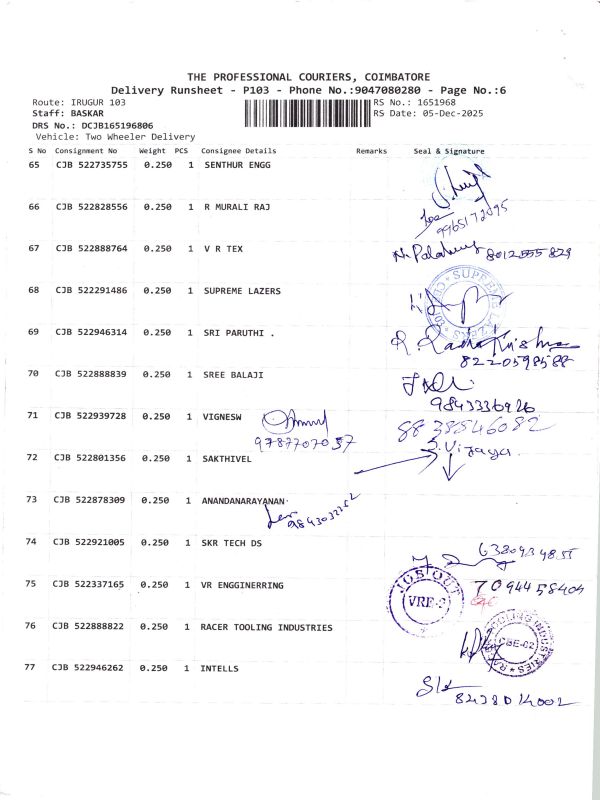 THE PROFESSIONAL COURIERS, COIMBATORE
Delivery Runsheet - P103 - Phone No.:9047080280 - Page No.:6
Route: IRUGUR 103 RS No.: 1651968
Staff: BASKAR RS Date: 05-Dec-2025
DRS No.: DCJB165196806
Vehicle: Two Wheeler Delivery
S No Consignment No Weight PCS Consignee Details Remarks Seal & Signature
65 CJB 522735755 0.250 1 SENTHUR ENGG
66 CJB 522828556 0.250 1 R MURALI RAJ
9965172095
67 CJB 522888764 0.250 1 V R TEX
8012555829
68 CJB 522291486 0.250 1 SUPREME LAZERS
SUPREME LAZERS
69 CJB 522946314 0.250 1 SRI PARUTHI .
R. Radha Krishna
8220598588
70 CJB 522888839 0.250 1 SREE BALAJI
9843336926
71 CJB 522939728 0.250 1 VIGNESW
9787707057
8838546082
S. Vijaya
72 CJB 522801356 0.250 1 SAKTHIVEL
73 CJB 522878309 0.250 1 ANANDANARAYANAN
74 CJB 522921005 0.250 1 SKR TECH DS
75 CJB 522337165 0.250 1 VR ENGGINERRING
7094458404
JOB OUT
VRE-2
76 CJB 522888822 0.250 1 RACER TOOLING INDUSTRIES
CBE-02
77 CJB 522946262 0.250 1 INTELLS
8438014002